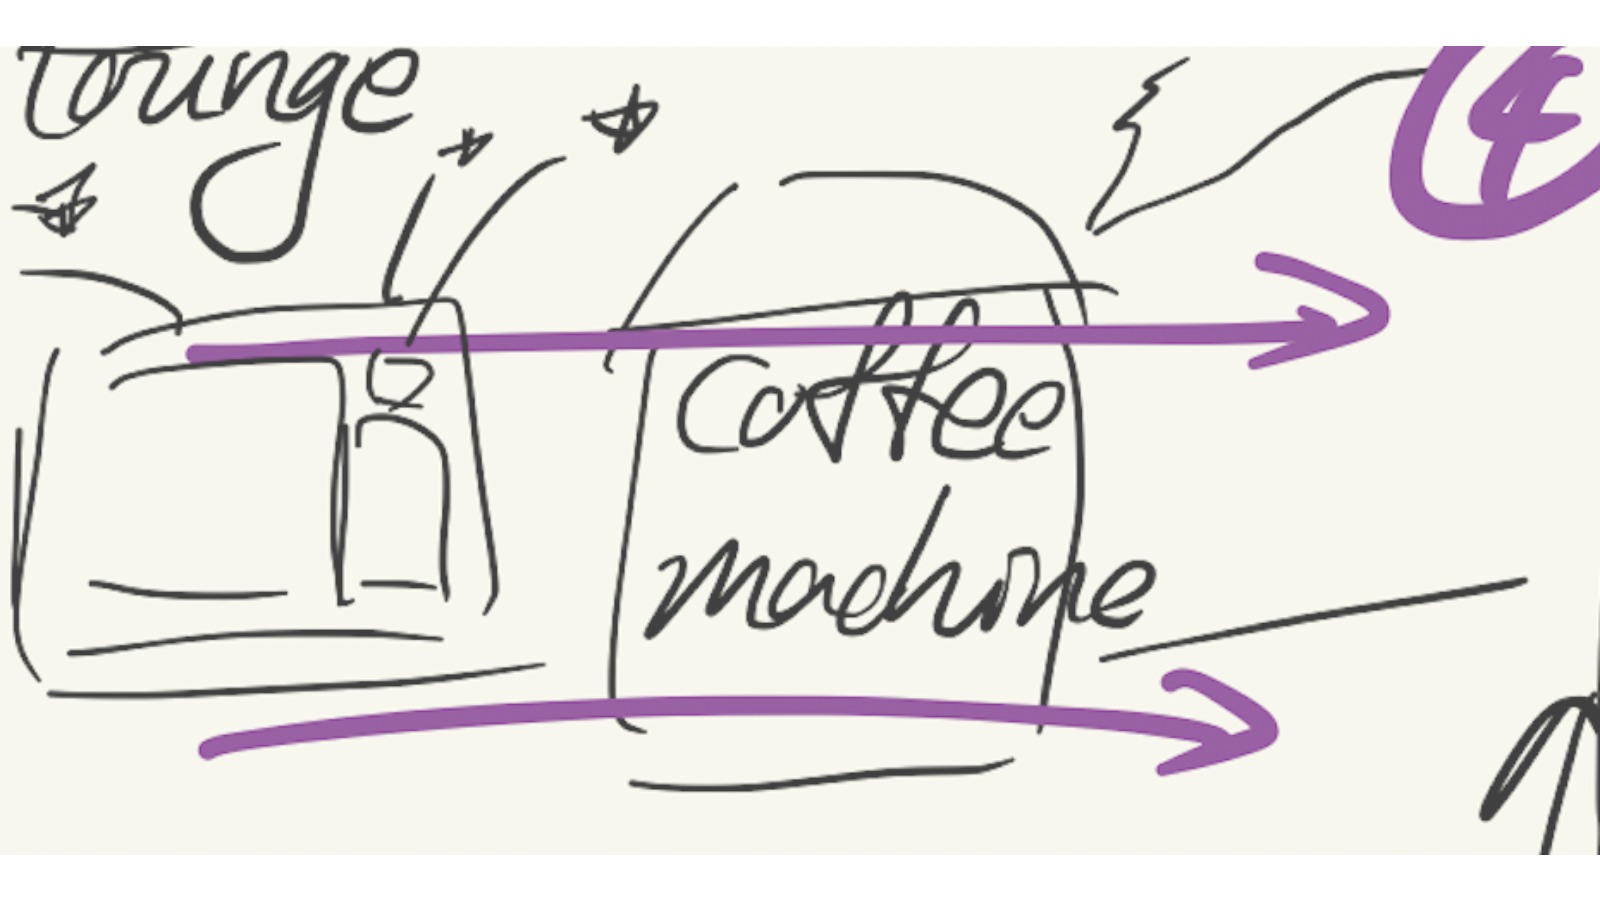 lounge
4
coffee
machine